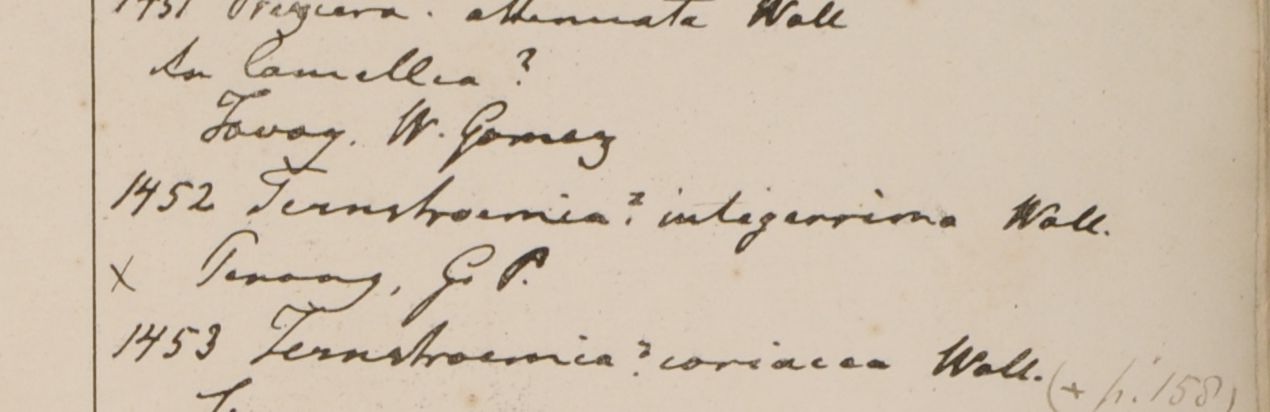 1451 Freziera. attenuata Wall
An Camellia?
Tavoy. W. Gomez
1452 Ternstroemia? integerrima Wall.
x Penang, G. P.
1453 Ternstroemia? coriacea Wall. (+ p. 158)